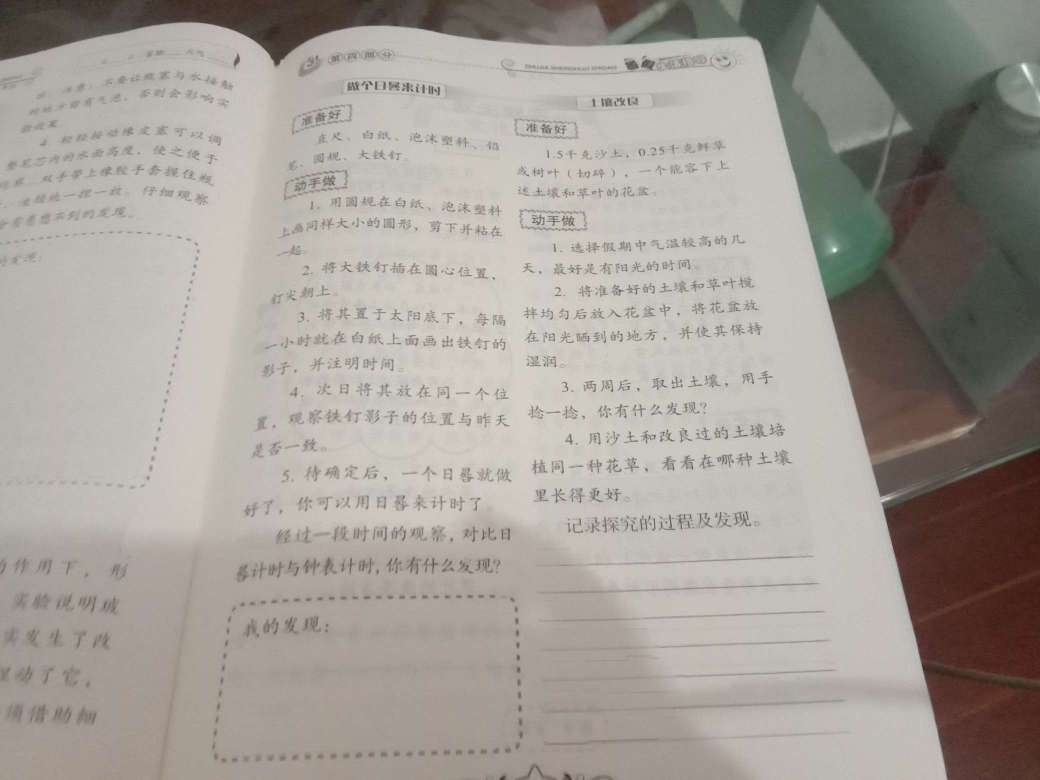 不要让瓶塞与水接触
的地方留有气泡，否则会影响实
验效果。
4. 轻轻按动橡皮塞可以调
整笔芯内的水面高度，使之便于
观察。双手带上橡胶手套握住瓶
一捏一放。仔细观察
的发现：
作用下，形
实验说明玻
实发生了改
动了它，
须借助细
第四部分
做个日晷来计时
准备好
直尺、白纸、泡沫塑料、铅
笔、圆规、大铁钉。
动手做
1. 用圆规在白纸、泡沫塑料
上画同样大小的圆形，剪下并粘在
一起。
2. 将大铁钉插在圆心位置，
钉尖朝上。
3. 将其置于太阳底下，每隔
一小时就在白纸上面画出铁钉的
影子，并注明时间。
4. 次日将其放在同一个位
置，观察铁钉影子的位置与昨天
是否一致。
5. 待确定后，一个日晷就做
好了，你可以用日晷来计时了。
经过一段时间的观察，对比日
晷计时与钟表计时，你有什么发现？
我的发现：
土壤改良
准备好
1.5千克沙土，0.25千克鲜草
或树叶（切碎），一个能容下上
述土壤和草叶的花盆。
动手做
1. 选择假期中气温较高的几
天，最好是有阳光的时间。
2. 将准备好的土壤和草叶搅
拌均匀后放入花盆中，将花盆放
在阳光晒到的地方，并使其保持
湿润。
3. 两周后，取出土壤，用手
捻一捻，你有什么发现？
4. 用沙土和改良过的土壤培
植同一种花草，看看在哪种土壤
里长得更好。
记录探究的过程及发现。